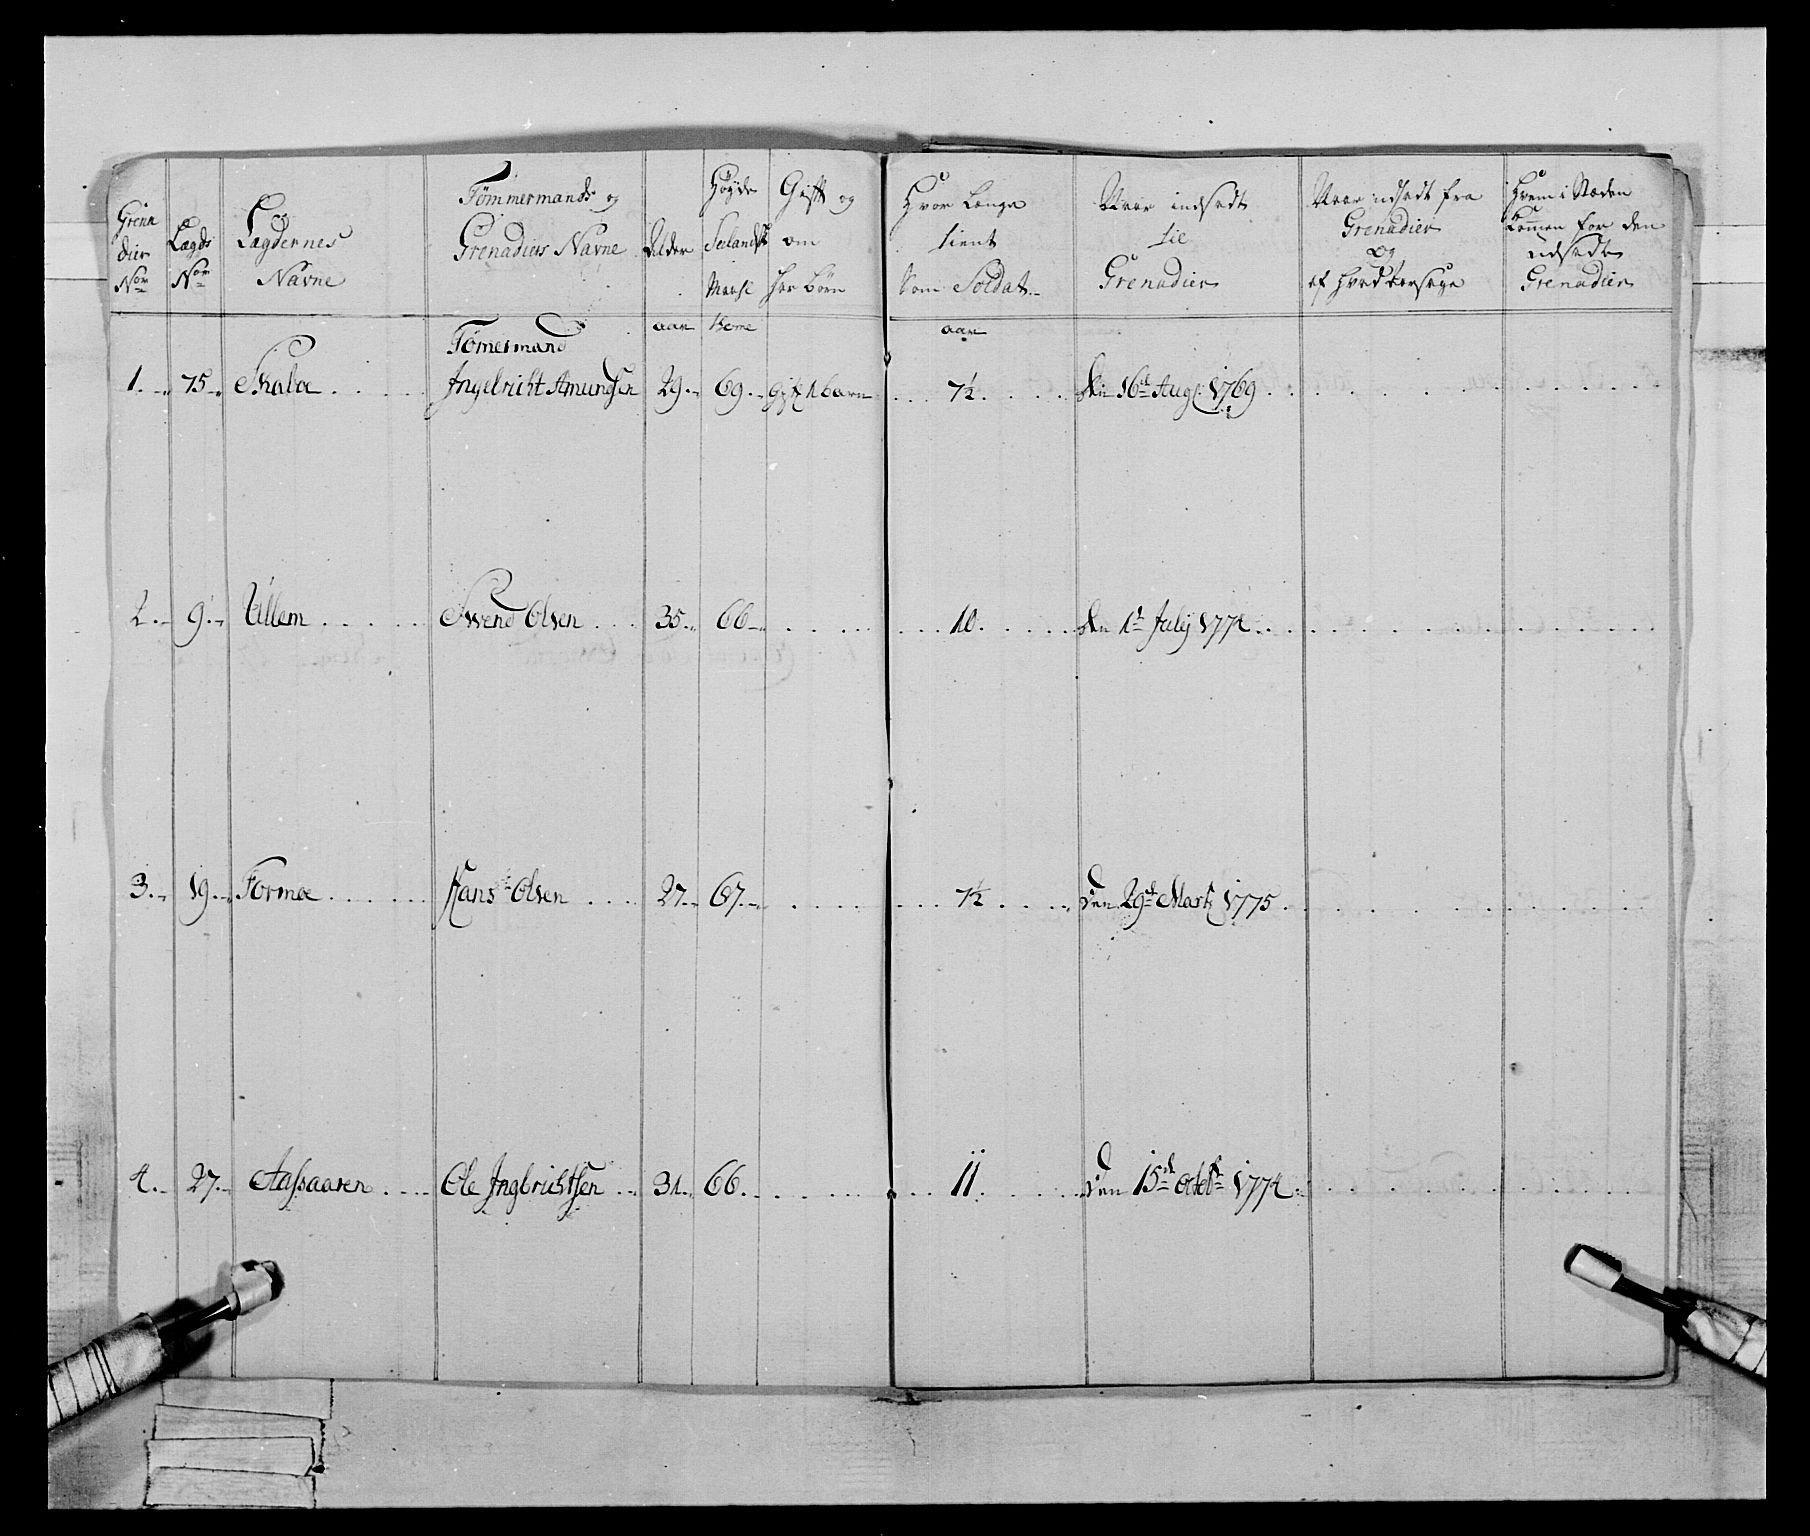 Grena
dier
Nor
Lægds
Nor
Lægdernes
Navne
Tömmermands og
Grenadiers Navne
Alder
Höyde
Seelandsk
Maahl
Gift og
om
har börn
Hvor Længe
tient
som Soldat
Naar indsadt
til
Grenadier
Naar udsadt fra
Grenadier
og
af hvad aarsage
Hvem i Stæden
kommen for den
udsadte
Grenadier
aar
Tomme
aar
Tömermand
1. 75. Skala Ingebricht Amundsen 29. 69. gift 1 barn 7½ den 16de Aug: 1769
2. 9. Ullem Svend Olsen 35. 66. 10. den 1te July 1774
3. 19. Formoe Hans Olsen 27. 67. 7½ den 29de Marti 1775
4. 27. Aassaaren Ole Ingbrichtsen 31. 66. 11. den 15de octobr 1774